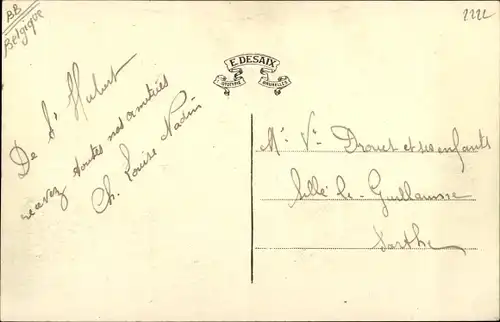 BB
Belgique
2222
E. DESAIX
BRUXELLES
De St Hubert
recevez toutes nos amitiés
Ch. Louise Nadin
Mr Ve Drouet et ses enfants
Sillé-le-Guillaume
Sarthe